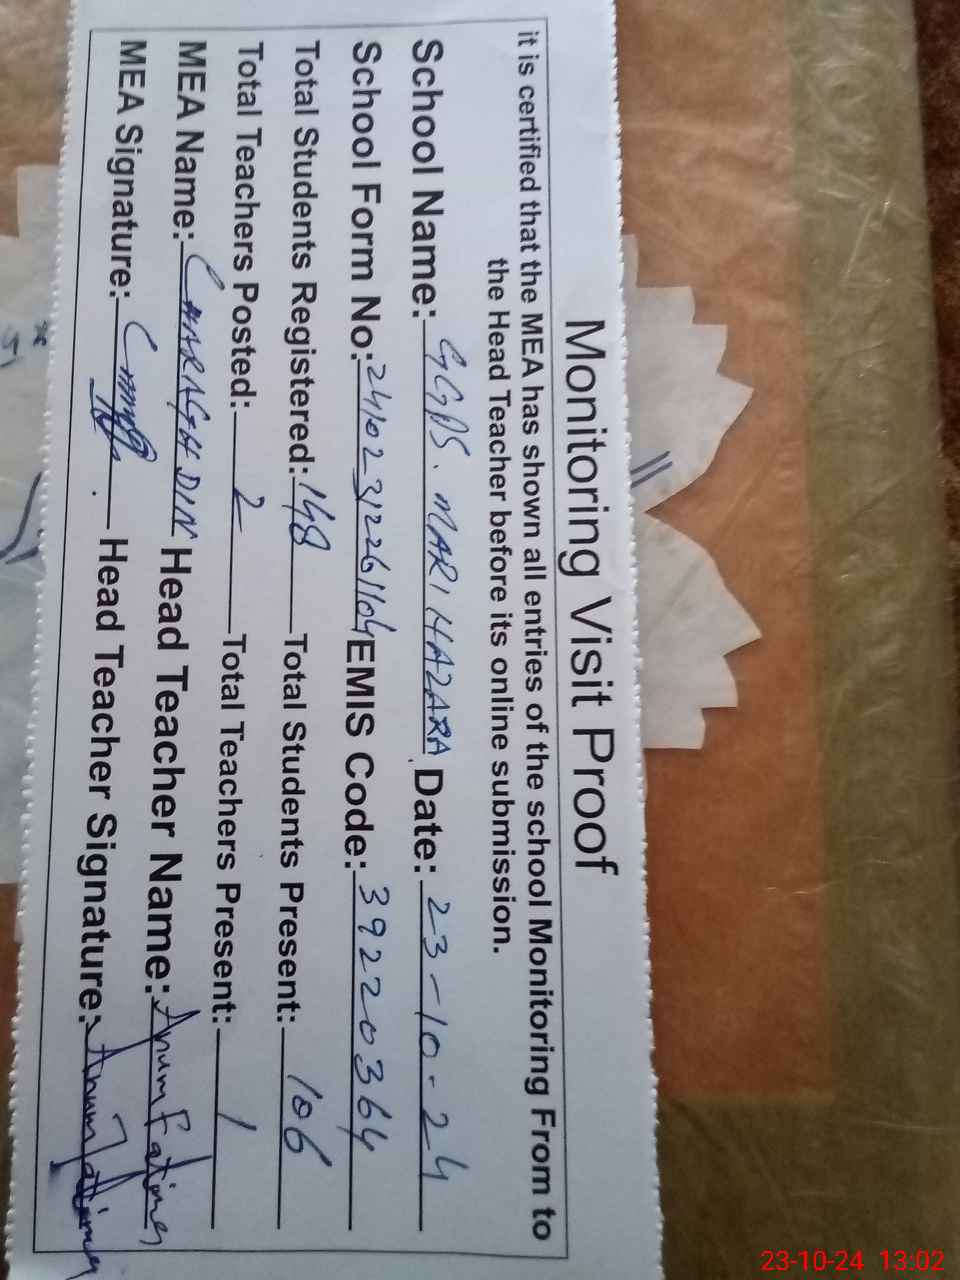 Monitoring Visit Proof
it is certified that the MEA has shown all entries of the school Monitoring From to
the Head Teacher before its online submission.
School Name: GGPS. MARI HAZARA Date: 23-10-24
School Form No: 24102312261104 EMIS Code: 39220364
Total Students Registered: 148 Total Students Present: 106
Total Teachers Posted: 2 Total Teachers Present: 1
MEA Name: CHARAGH DIN Head Teacher Name: Anum Fatima
MEA Signature: Head Teacher Signature: Anum Fatima
23-10-24 13:02